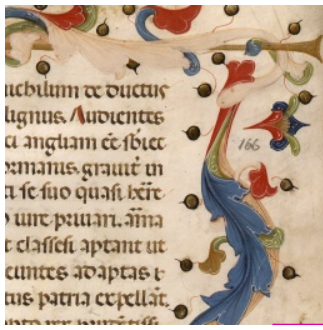 nichilum de ductus
lignus. Audientes
ci angliam eē sbiec
ormanis. grauit̄ in
ti se suo quasi bēre
o iure priuari. arma
t classes aptant ut
cuntes adaptas
tus patria expellat.
166